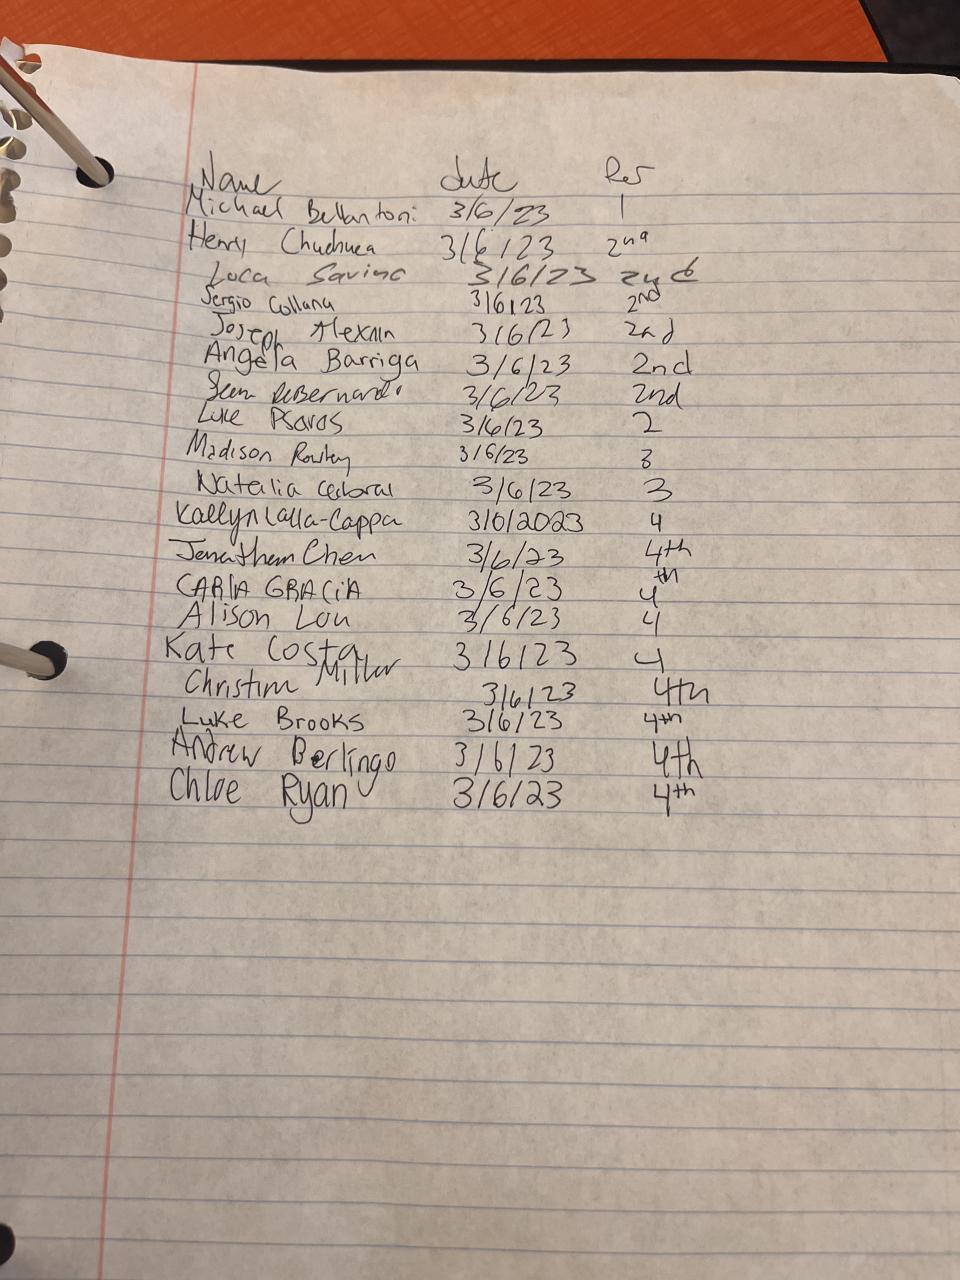 Name date Per
Michael Bellantoni 3/6/23 1
Henry Chuchuca 3/6/23 2nd
Luca Savino 3/6/23 2nd
Sergio Collana 3/6/23 2nd
Joseph 3/6/23 2nd
Angela Barriga 3/6/23 2nd
Sean DeBernardo 3/6/23 2nd
Luke Psaros 3/6/23 2
Madison 3/6/23 3
Natalia 3/6/23 3
Kaelyn Lalla-Cappa 3/6/2023 4
Jonathan Chen 3/6/23 4th
CARlA GRACiA 3/6/23 4th
Alison Lou 3/6/23 4
Kate Costa 3/6/23 4
Christina Miller 3/6/23 4th
Luke Brooks 3/6/23 4th
Andrew Berlingo 3/6/23 4th
Chloe Ryan 3/6/23 4th